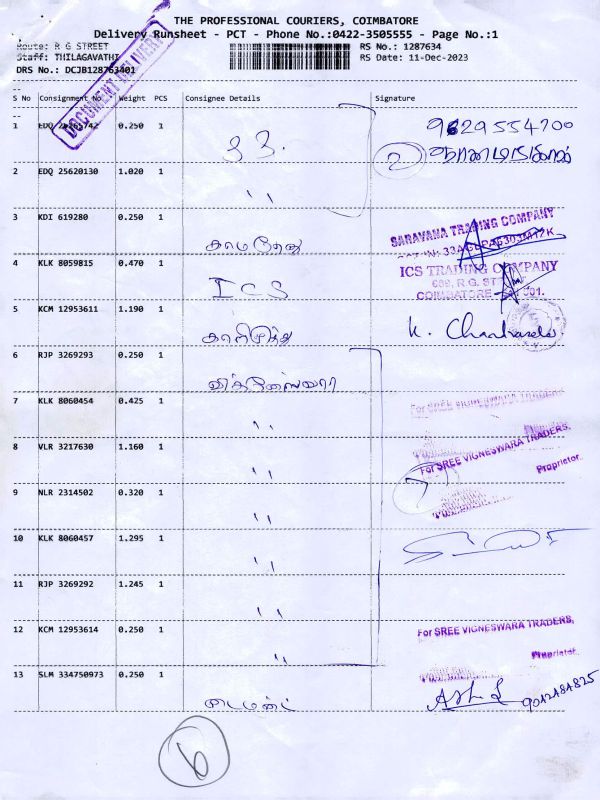 THE PROFESSIONAL COURIERS, COIMBATORE
Delivery Runsheet - PCT - Phone No.:0422-3505555 - Page No.:1
Route: R G STREET RS No.: 1287634
Staff: THILAGAVATHI RS Date: 11-Dec-2023
DRS No.: DCJB128763401
DOCUMENT DELIVERY
S No Consignment No Weight PCS Consignee Details Signature
1 EDQ 0.250 1 33. 9629554700
2 EDQ 25620130 1.020 1 " 2
3 KDI 619280 0.250 1 காமதேனு SARAVANA TRADING COMPANY
4 KLK 8059815 0.470 1 ICS ICS TRADING COMPANY
R.G. ST
COIMBATORE
5 KCM 12953611 1.190 1 காளிமுத்து
6 RJP 3269293 0.250 1 விக்னேஸ்வரா
7 KLK 8060454 0.425 1 " For SREE VIGNESWARA TRADERS,
8 VLR 3217630 1.160 1 " For SREE VIGNESWARA TRADERS,
Proprietor.
9 NLR 2314502 0.320 1 " 7
10 KLK 8060457 1.295 1 "
11 RJP 3269292 1.245 1 "
12 KCM 12953614 0.250 1 " For SREE VIGNESWARA TRADERS,
Proprietor.
13 SLM 334750973 0.250 1 டைமண்ட்
6